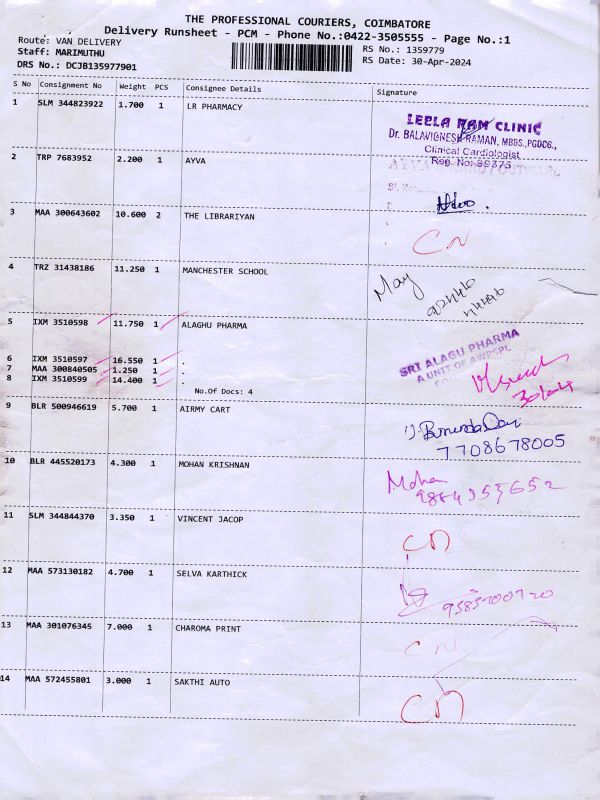 THE PROFESSIONAL COURIERS, COIMBATORE
Delivery Runsheet - PCM - Phone No.:0422-3505555 - Page No.:1
Route: VAN DELIVERY
Staff: MARIMUTHU
DRS No.: DCJB135977901
RS No.: 1359779
RS Date: 30-Apr-2024
S No Consignment No Weight PCS Consignee Details Signature
1 SLM 344823922 1.700 1 LR PHARMACY
LEELA RAM CLINIC
Dr. BALAVIGNESH RAMAN, MBBS.,PGDCC.,
Clinical Cardiologist
Reg. No: 99375
2 TRP 7683952 2.200 1 AYVA
AYVA
3 MAA 300643602 10.600 2 THE LIBRARIYAN
CN
4 TRZ 31438186 11.250 1 MANCHESTER SCHOOL
May
5 IXM 3510598 11.750 1 ALAGHU PHARMA
SRI ALAGU PHARMA
A UNIT OF AWPSPL
6 IXM 3510597 16.550 1 .
7 MAA 300840505 1.250 1 .
8 IXM 3510599 14.400 1 .
No.Of Docs: 4
9 BLR 500946619 5.700 1 AIRMY CART
7708678005
10 BLR 445520173 4.300 1 MOHAN KRISHNAN
Mohan
9884355652
11 SLM 344844370 3.350 1 VINCENT JACOP
CN
12 MAA 573130182 4.700 1 SELVA KARTHICK
13 MAA 301076345 7.000 1 CHAROMA PRINT
CN
14 MAA 572455801 3.000 1 SAKTHI AUTO
CN